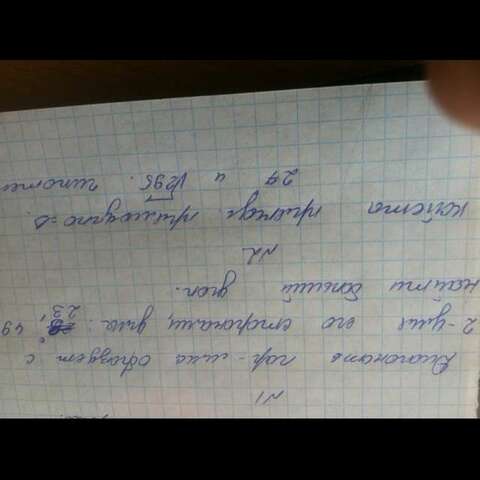 N1
Диагональ пар-мма образует с
2-умя его сторонами углы: 23°, 49
найти больший угол.
N2
катета прямоуг.
24 и √295.